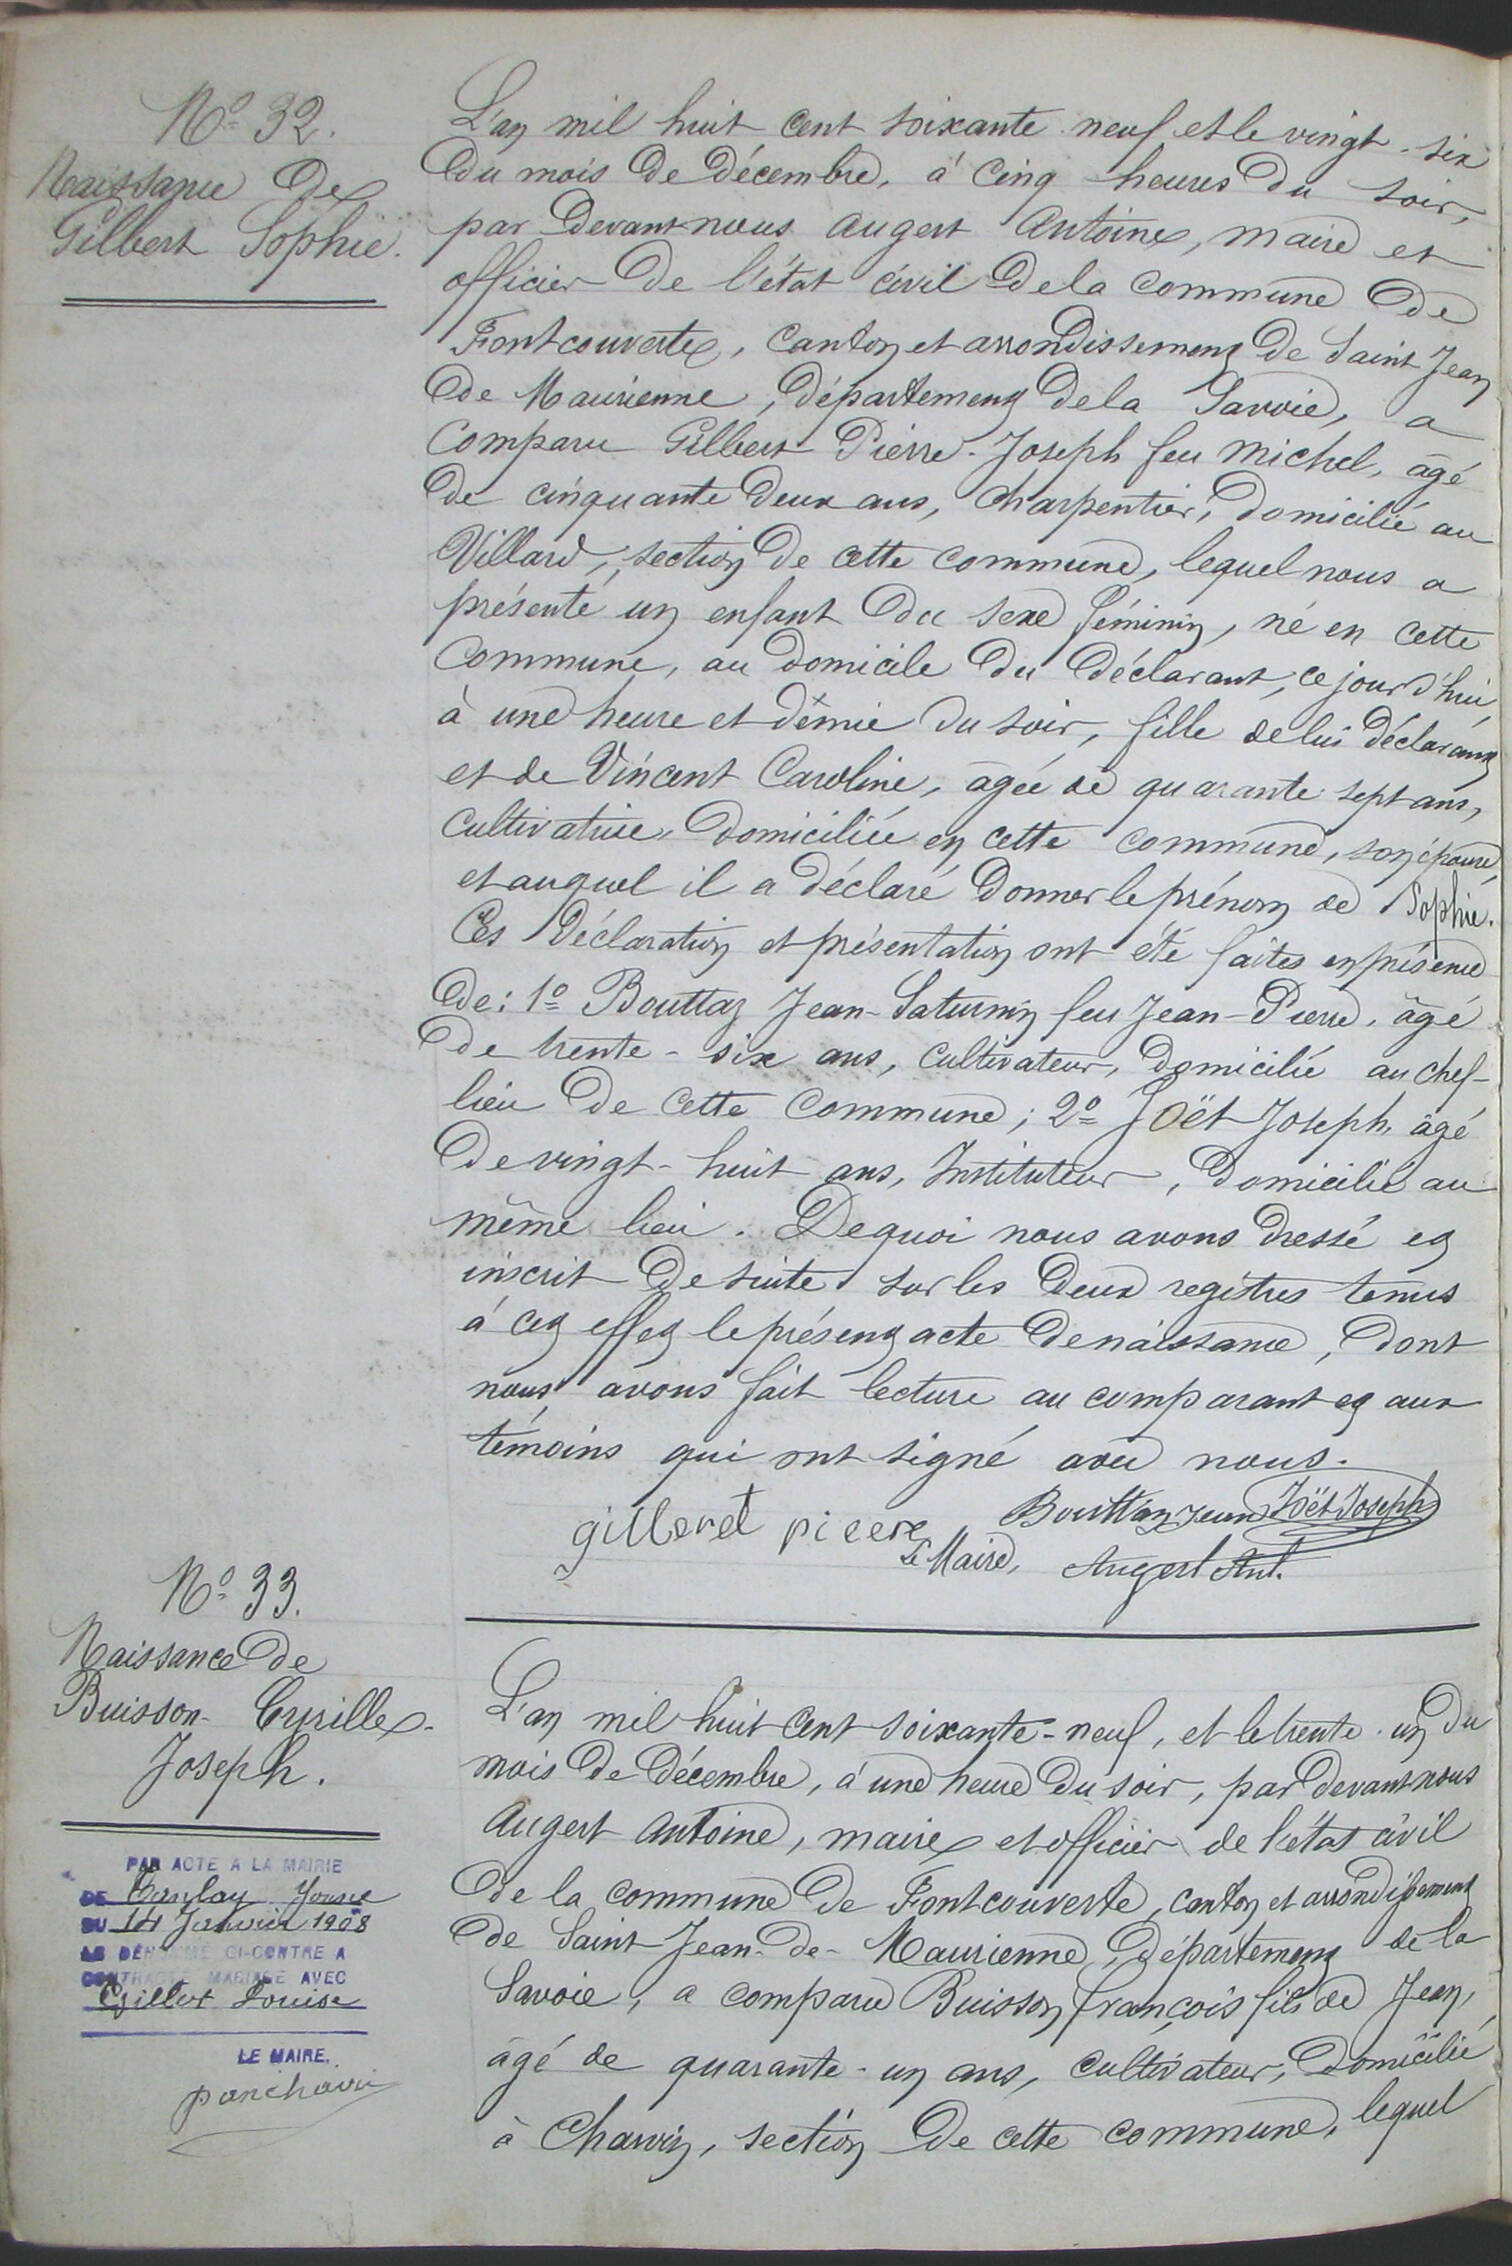 N° 32.
Naissance de
Gilbert Sophie.
L'an mil huit cent soixante neuf et le vingt-six
du mois de décembre, à cinq heures du soir,
par devant nous Augert Antoine, maire et
officier de l'état civil de la commune de
Fontcouverte, canton et arrondissement de Saint Jean
de Maurienne, département de la Savoie, a
comparu Gilbert Pierre-Joseph feu Michel, âgé
de cinquante deux ans, charpentier, domicilié au
Villard, section de cette commune, lequel nous a
présenté un enfant du sexe féminin, né en cette
commune, au domicile du déclarant, ce jour d'hui,
à une heure et demie du soir, fille de lui déclarant
et de Vincent Caroline, âgée de quarante sept ans,
cultivatrice, domiciliée en cette commune, son épouse,
et auquel il a déclaré donner le prénom de Sophie.
Ces déclaration et présentation ont été faites en présence
de: 1° Bouttaz Jean-Saturnin feu Jean-Pierre, âgé
de trente-six ans, cultivateur, domicilié au chef-
lieu de cette commune; 2° Joët Joseph, âgé
de vingt-huit ans, Instituteur, domicilié au
même lieu. De quoi nous avons dressé et
inscrit de suite sur les deux registres tenus
à cet effet le présent acte de naissance, dont
nous avons fait lecture au comparant et aux
témoins qui ont signé avec nous.
Bouttaz Jean Joët Joseph
pierre
Le Maire, Augert Ant.
N° 33.
Naissance de
Buisson Cyrille-
Joseph.
PAR ACTE A LA MAIRIE
DE Yonne
DU 14 Janvier 1908
LE DÉNOMMÉ CI-CONTRE A
CONTRACTÉ MARIAGE AVEC
Gillot Louise
LE MAIRE,
L'an mil huit cent soixante-neuf, et le trente-un du
mois de décembre, à une heure du soir, par devant nous
Augert Antoine, maire et officier de l'état civil
de la commune de Fontcouverte, canton et arrondissement
de Saint-Jean-de-Maurienne, département de la
Savoie, a comparu Buisson François fils de Jean,
âgé de quarante-un ans, cultivateur, domicilié
à Charvin, section de cette commune, lequel